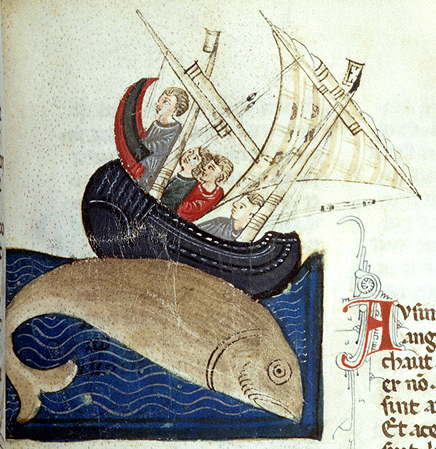 AVsin
ang
chaut
er no.
sint a
Et ace